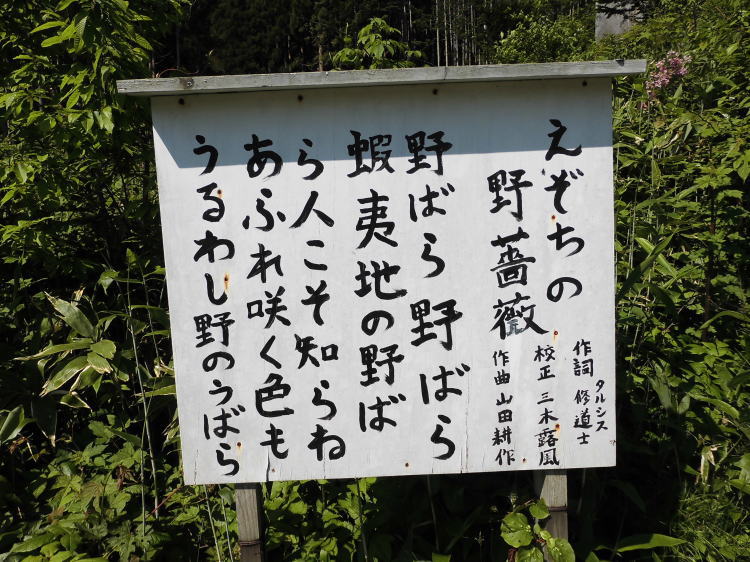 えぞちの
野薔薇
作詞 タルシス修道士
校正 三木露風
作曲 山田耕作
野ばら野ばら
蝦夷地の野ば
ら人こそ知らね
あふれ咲く色も
うるわし野のうばら